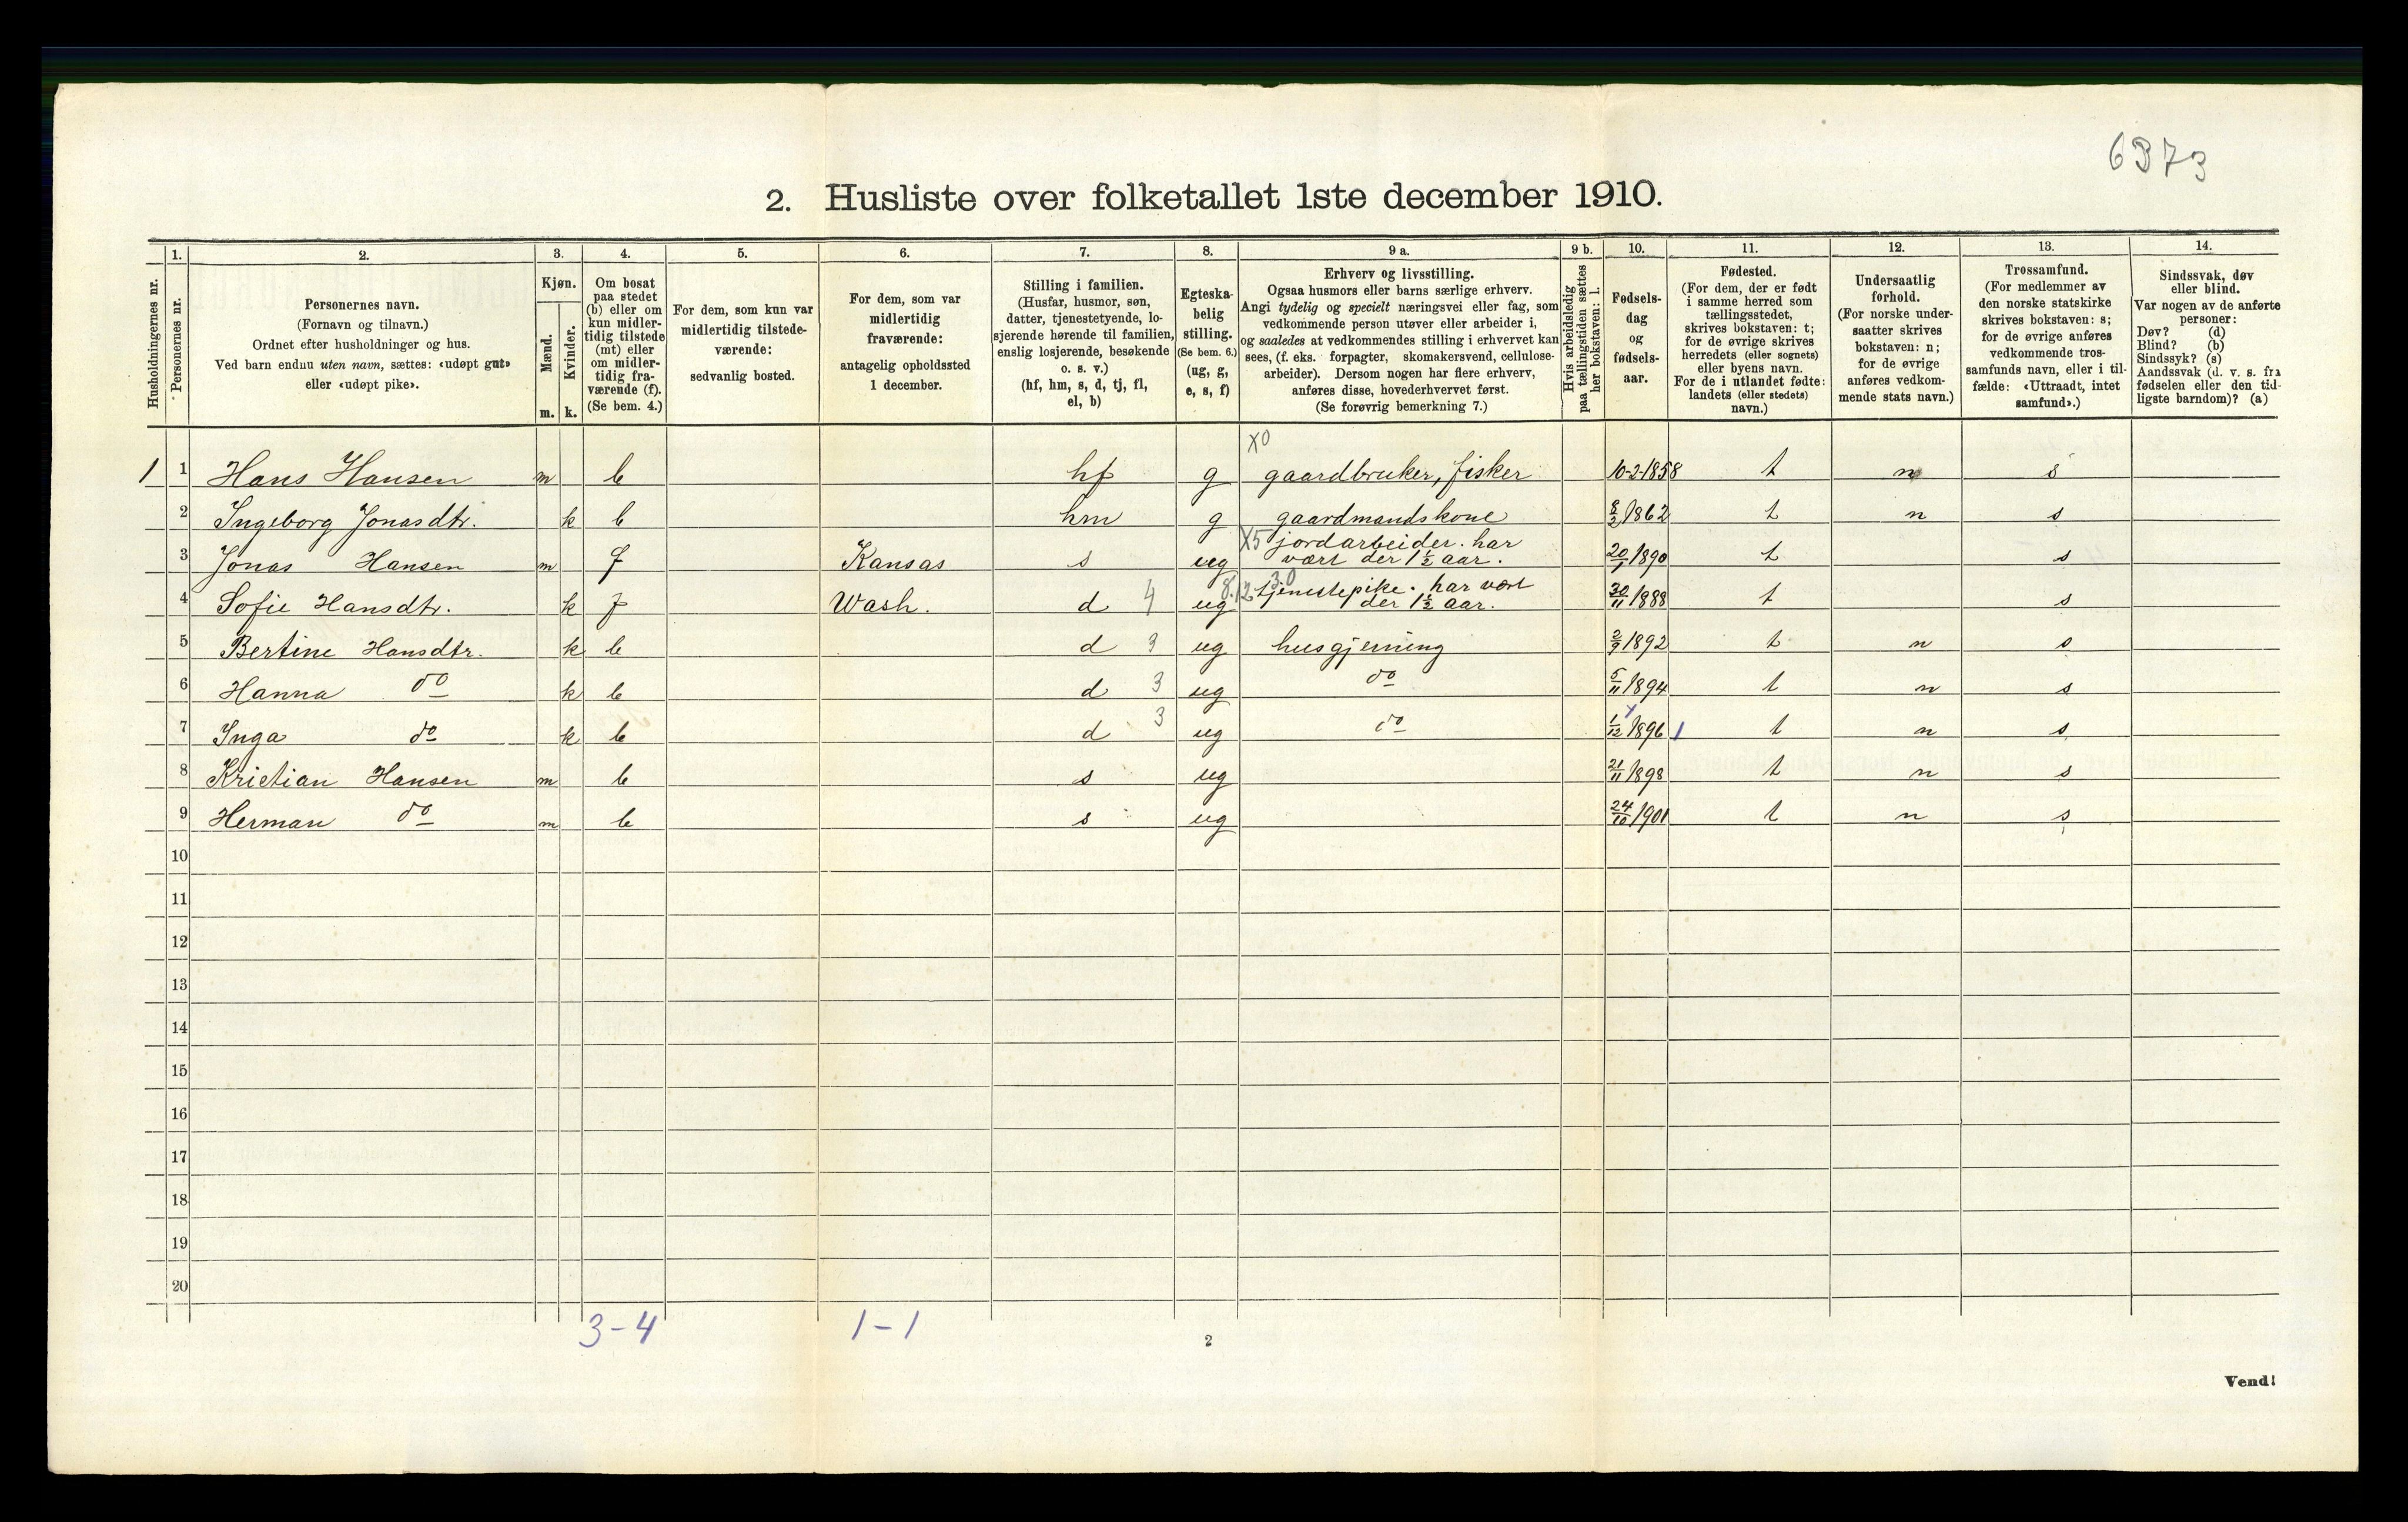 6373
2. Husliste over folketallet 1ste december 1910.
Husholdningernes nr.
1.
Personernes nr.
2.
Personernes navn.
(Fornavn og tilnavn.)
Ordnet efter husholdninger og hus.
Ved barn endnu uten navn, sættes: «udøpt gut»
eller «udøpt pike».
3.
Kjøn.
Mænd.
m.
Kvinder.
k.
4.
Om bosat
paa stedet
(b) eller om
kun midler-
tidig tilstede
(mt) eller
om midler-
tidig fra-
værende (f).
(Se bem. 4.)
5.
For dem, som kun var
midlertidig tilstede-
værende:
sedvanlig bosted.
6.
For dem, som var
midlertidig
fraværende:
antagelig opholdssted
1 december.
7.
Stilling i familien.
(Husfar, husmor, søn,
datter, tjenestetyende, lo-
sjerende hørende til familien,
enslig losjerende, besøkende
o. s. v.)
(hf, hm, s, d, tj, fl,
el, b)
8.
Egteska-
belig
stilling.
(Se bem. 6.)
(ug, g,
e, s, f)
9 a.
Erhverv og livsstilling.
Ogsaa husmors eller barns særlige erhverv.
Angi tydelig og specielt næringsvei eller fag, som
vedkommende person utøver eller arbeider i,
og saaledes at vedkommendes stilling i erhvervet kan
sees, (f. eks. forpagter, skomakersvend, cellulose-
arbeider). Dersom nogen har flere erhverv,
anføres disse, hovederhvervet først.
(Se forøvrig bemerkning 7.)
9 b.
Hvis arbeidsledig
paa tællingstiden sættes
her bokstaven: l.
10.
Fødsels-
dag
og
fødsels-
aar.
11.
Fødested.
(For dem, der er født
i samme herred som
tællingsstedet,
skrives bokstaven: t;
for de øvrige skrives
herredets (eller sognets)
eller byens navn.
For de i utlandet fødte:
landets (eller stedets)
navn.)
12.
Undersaatlig
forhold.
(For norske under-
saatter skrives
bokstaven: n;
for de øvrige
anføres vedkom-
mende stats navn.)
13.
Trossamfund.
(For medlemmer av
den norske statskirke
skrives bokstaven: s;
for de øvrige anføres
vedkommende tros-
samfunds navn, eller i til-
fælde: «Uttraadt, intet
samfund».)
14.
Sindssvak, døv
eller blind.
Var nogen av de anførte
personer:
Døv? (d)
Blind? (b)
Sindssyk? (s)
Aandssvak (d. v. s. fra
fødselen eller den tid-
ligste barndom)? (a)
X0
1 1 Hans Hansen m b hf g gaardbruker, fisker 10-2-1858 t n s
2 Ingeborg Jonasdtr. k b hm g gaardmandskone 8/2 1862 t n s
3 Jonas Hansen m f Kansas s ug X5 jordarbeider. har
vært der 1 1/2 aar. 20/1 1890 t s
4 Sofie Hansdtr. k f Wash. d 4 ug 8.12 30 tjenestepike. har vært
der 1 1/2 aar. 30/11 1888 t s
5 Bertine Hansdtr. k b d 3 ug husgjerning 2/9 1892 t n s
6 Hanna do k b d 3 ug do 5/11 1894 t n s
7 Inga do k b d 3 ug do 1/12 1896 1 t n s
8 Kristian Hansen m b s ug 21/11 1898 t n s
9 Herman do m b s ug 24/10 1901 t n s
10
11
12
13
14
15
16
17
18
19
20
3-4 1-1
2
Vend!